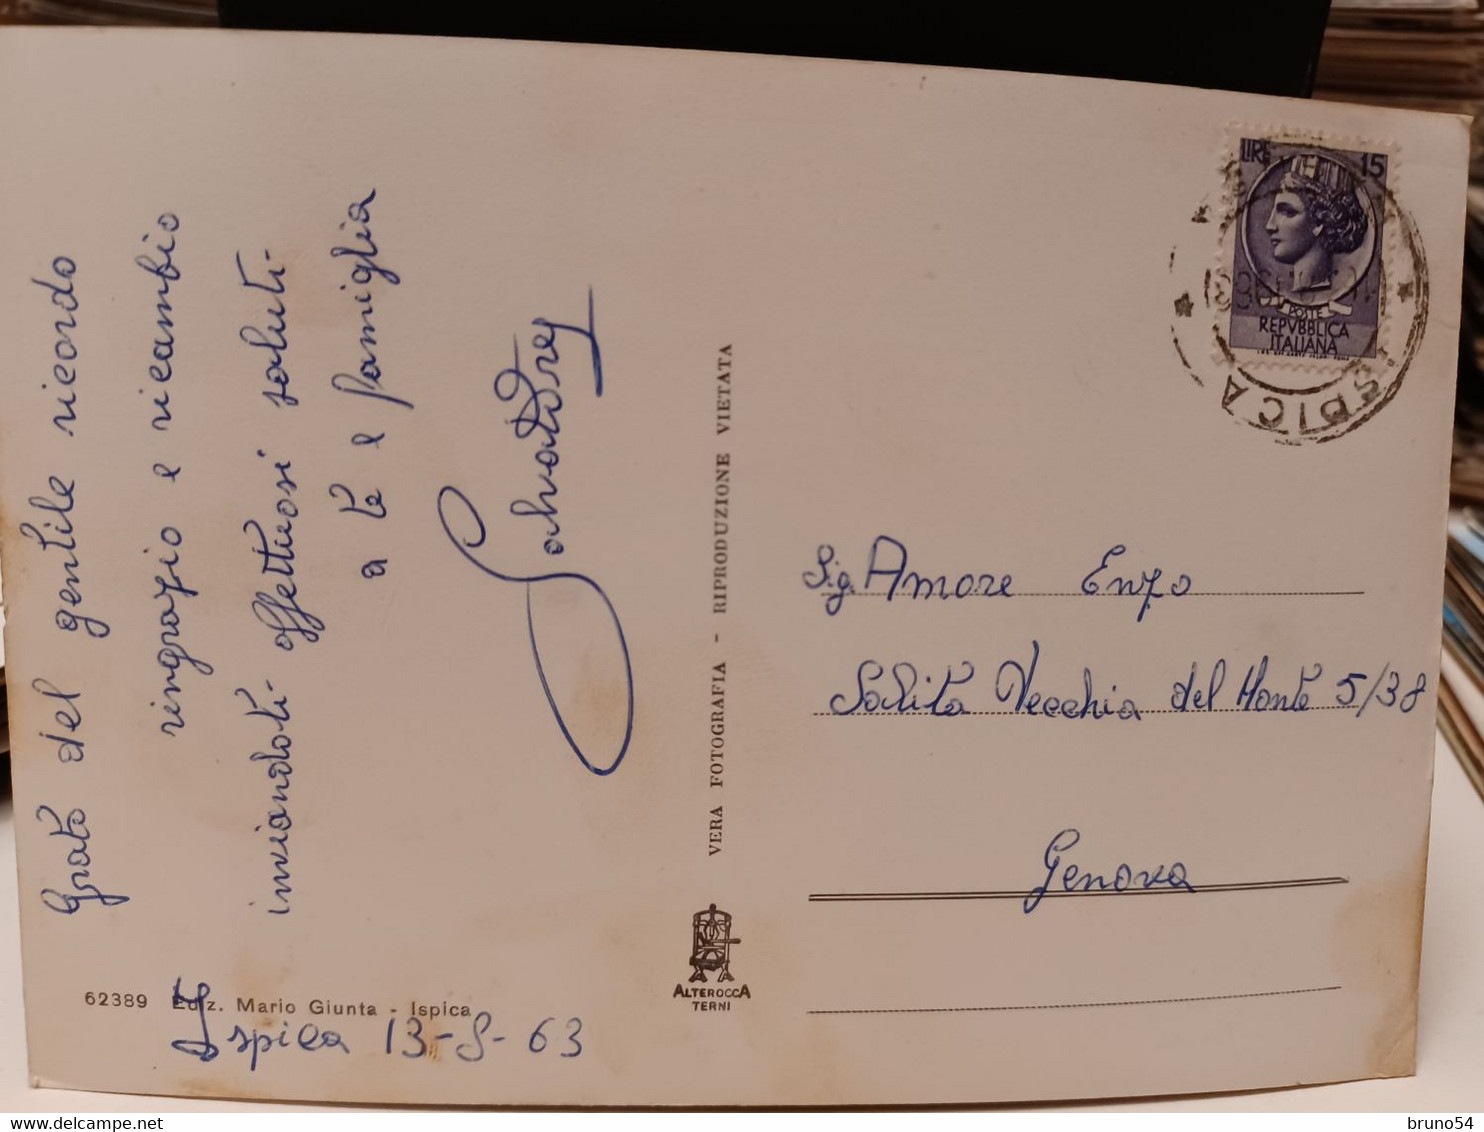 Grato del gentile ricordo
ringrazio e ricambio
inviandoti affettuosi saluti-
a te e famiglia
Salvatore
62389 Ediz. Mario Giunta - Ispica
Ispica 13-8-63
VERA FOTOGRAFIA - RIPRODUZIONE VIETATA
ALTEROCCA
TERNI
LIRE 15
POSTE
REPVBBLICA
ITALIANA
ISPICA
Sig. Amore Enzo
Salita Vecchia del Monte 5/38
Genova
bruno54